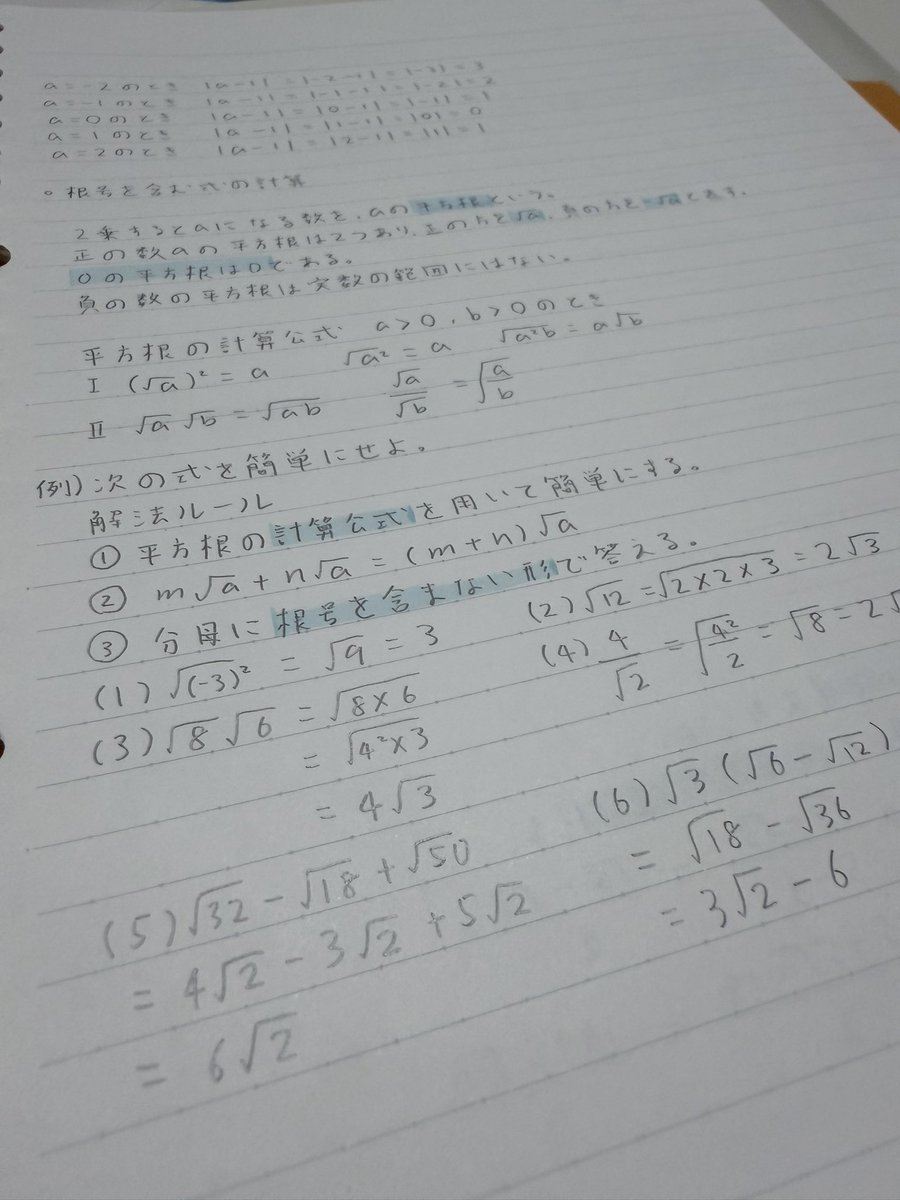 a=-2のとき |a-1|=|-2-1|=|-3|=3
a=-1のとき |a-1|=|-1-1|=|-2|=2
a=0のとき |a-1|=|0-1|=|-1|=1
a=1のとき |a-1|=|1-1|=|0|=0
a=2のとき |a-1|=|2-1|=|1|=1
○根号を含む式の計算
2乗するとaになる数を、aの平方根という。
正の数aの平方根は2つあり、正の方を√a、負の方を-√aと表す。
0の平方根は0である。
負の数の平方根は実数の範囲にはない。
平方根の計算公式 a>0、b>0のとき
Ⅰ (√a)²=a √a²=a √a²b=a√b
Ⅱ √a√b=√ab √a/√b=√(a/b)
例)次の式を簡単にせよ。
解法ルール
① 平方根の計算公式を用いて簡単にする。
② m√a+n√a=(m+n)√a
③ 分母に根号を含まない形で答える。
(1)√(-3)²=√9=3 (2)√12=√(2×2×3)=2√3
(3)√8√6=√(8×6) (4)4/√2=√(4²/2)=√8=2√
=√(4²×3)
=4√3
(5)√32-√18+√50 (6)√3(√6-√12)
=4√2-3√2+5√2 =√18-√36
=6√2 =3√2-6